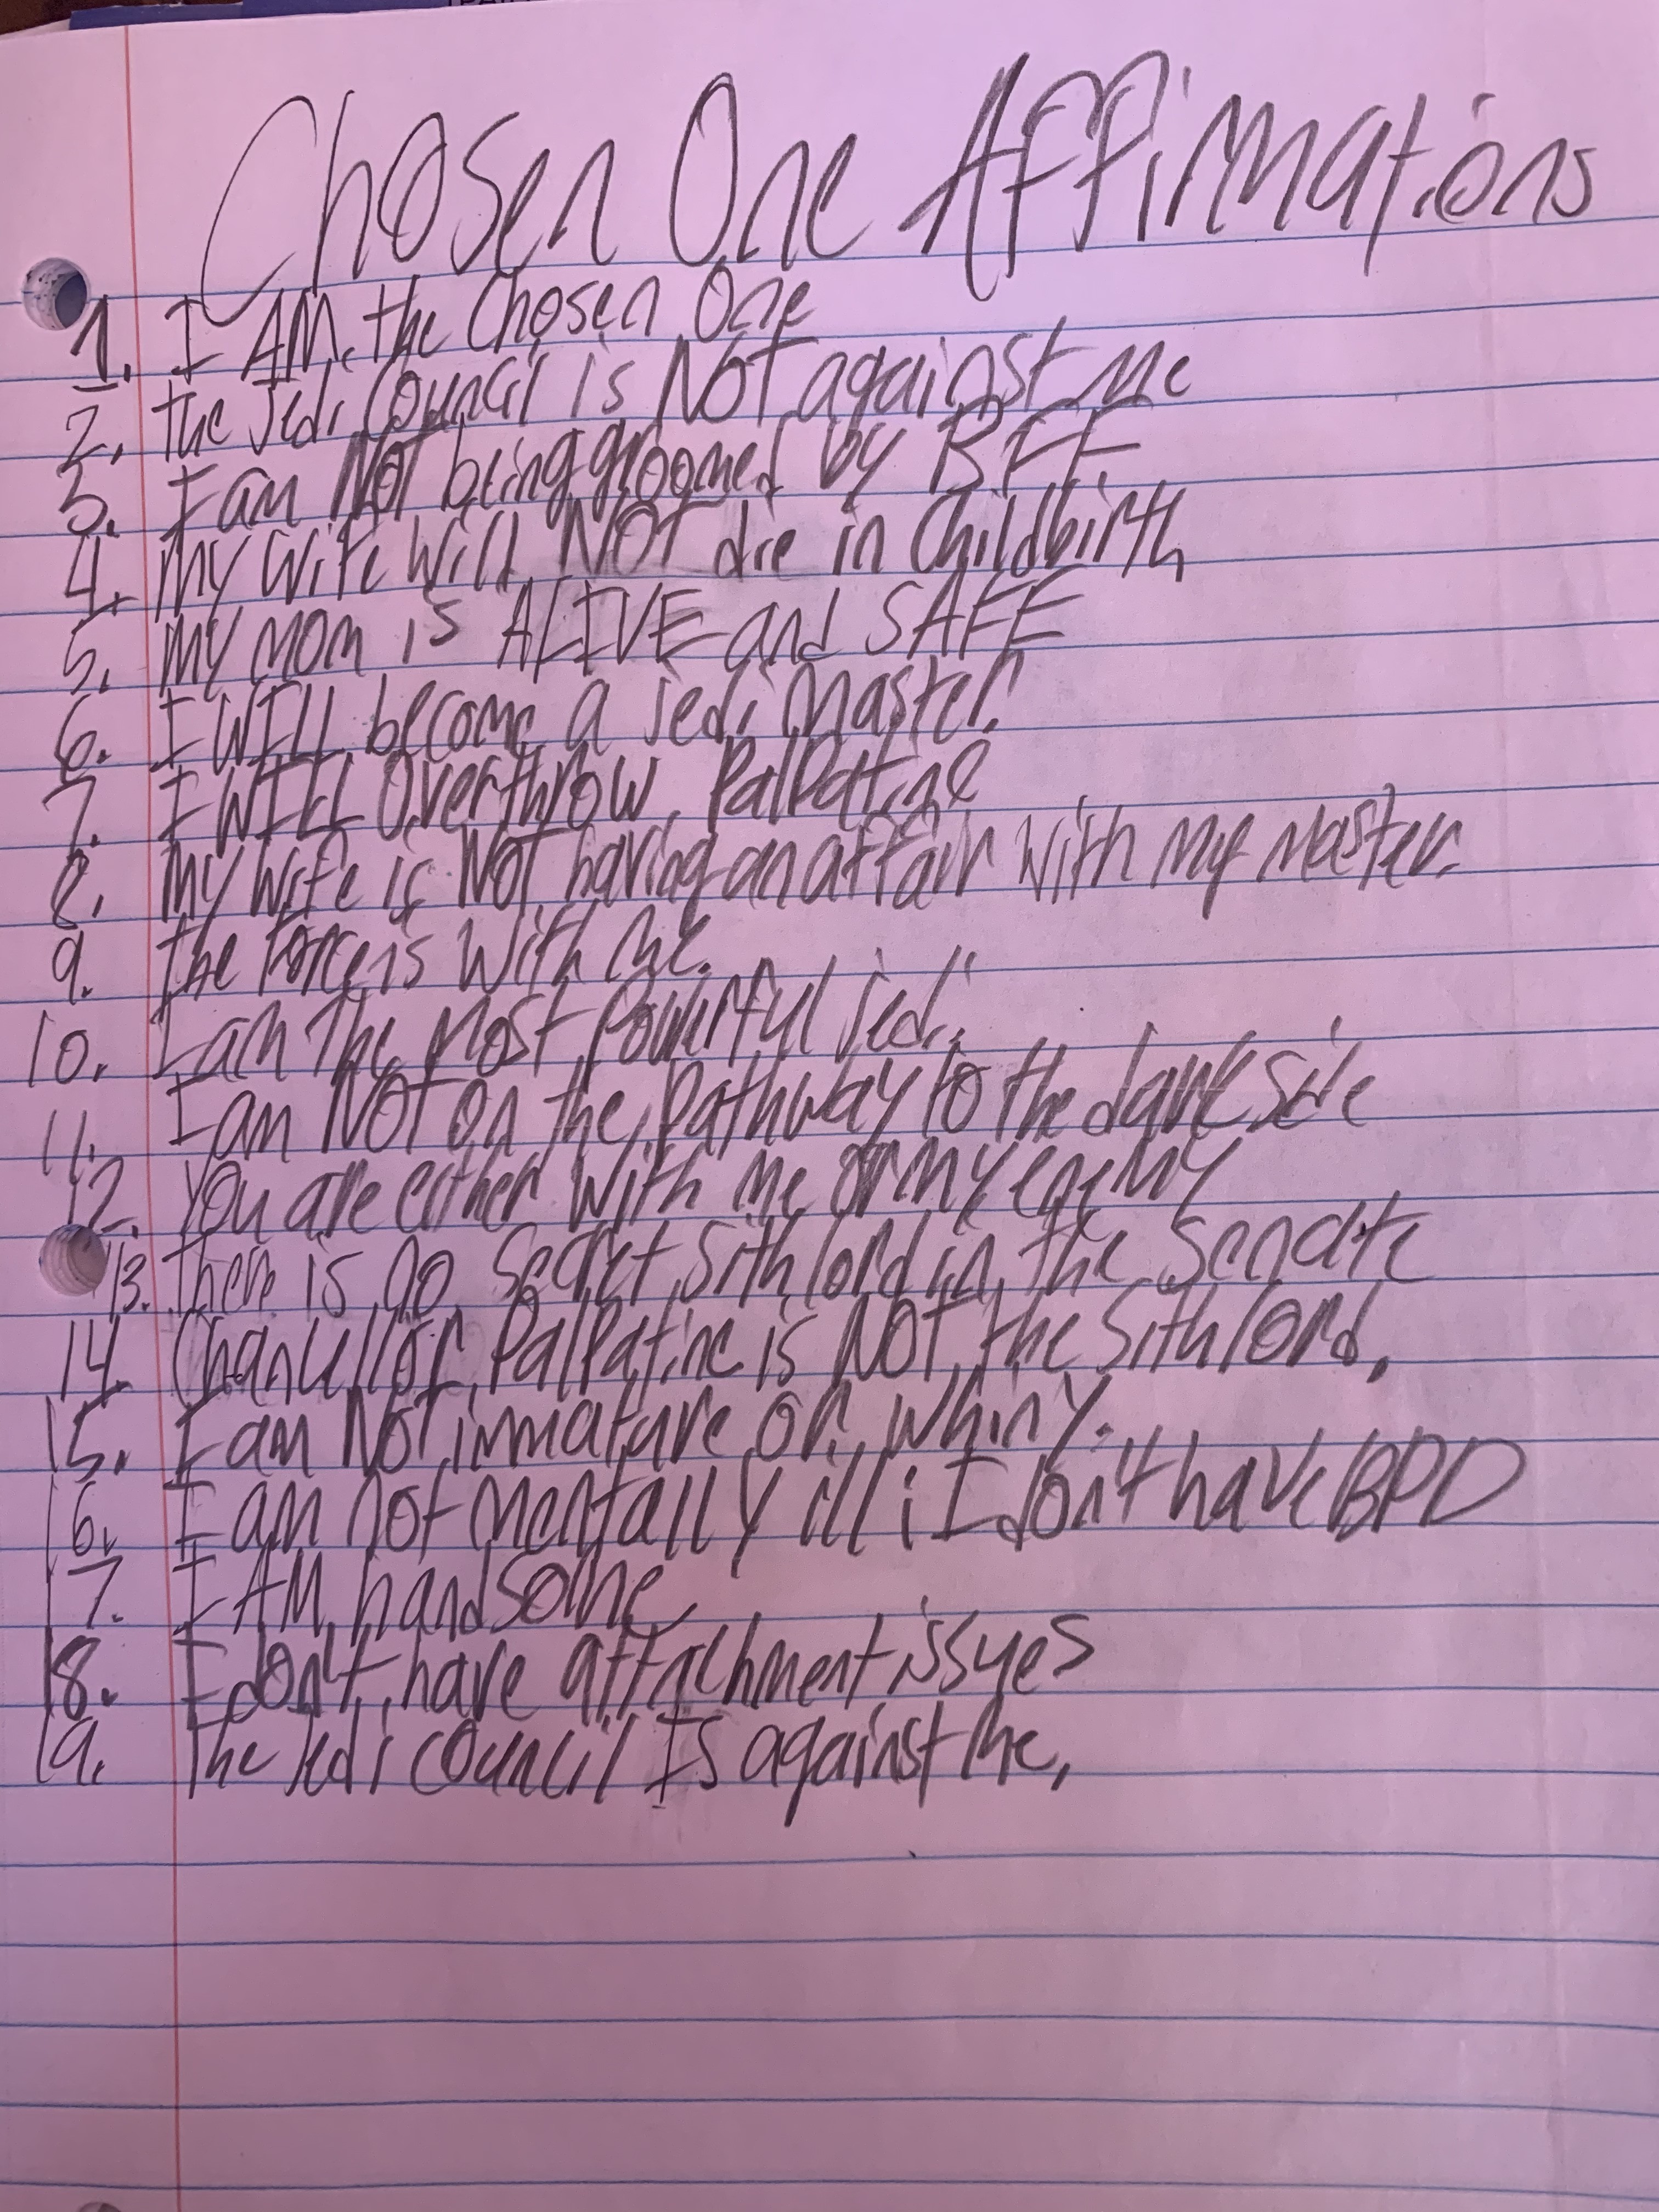 Chosen One Affirmations
1. I AM the Chosen One
2. the Jedi Council is NOT against me
3. I am NOT being groomed by BFF
4. My wife will NOT die in Childbirth
5. My mom is ALIVE and SAFE
6. I WILL become a Jedi Master!
7. I WILL Overthrow Palpatine
8. My wife is NOT having an affair with my master.
9. The Force is with me.
10. I am the Most Powerful Jedi.
11. I am NOT on the Pathway to the dark side
12. You are either with me or my enemy
13. There is no Secret Sith lord in the Senate
14. Chancellor Palpatine is NOT the Sith lord.
15. I am NOT immature or whiny.
16. I am not mentally ill; I don't have BPD
17. I AM handsome
18. I don't have attachment issues
19. The Jedi council IS against me.